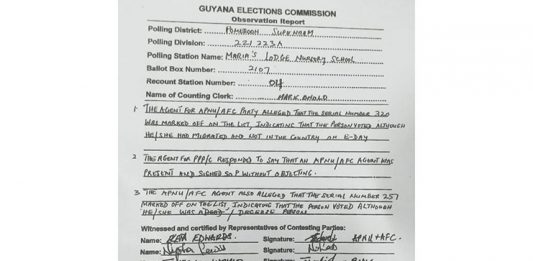 GUYANA ELECTIONS COMMISSION
Observation Report
Polling District: POMEROON SUPENAAM
Polling Division: 221 223A
Polling Station Name: MARIA'S LODGE NURSERY SCHOOL
Ballot Box Number: 2107
Recount Station Number: 04
Name of Counting Clerk: MARK
1 THE AGENT FOR APNU/AFC PARTY ALLEGED THAT THE SERIAL NUMBER 320
WAS MARKED OFF ON THE LIST, INDICATING THAT THE PERSON VOTED ALTHOUGH
HE/SHE HAD MIGRATED AND NOT IN THE COUNTRY ON E-DAY
2 THE AGENT FOR PPP/C RESPONDED TO SAY THAT AN APNU/AFC AGENT WAS
PRESENT AND SIGNED SOP WITHOUT OBJECTING.
3 THE APNU/AFC AGENT ALSO ALLEGED THAT THE SERIAL NUMBER 257
MARKED OFF ON THE LIST, INDICATING THAT THE PERSON VOTED ALTHOUGH
HE/SHE WAS A DEAD / PERSON
Witnessed and certified by Representatives of Contesting Parties:
Name: RITA EDWARDS. Signature: APNU+AFC.
Name: Signature: